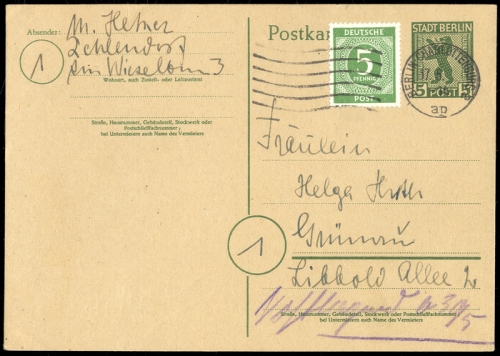 Absender:
M. Hetner
Zehlendorf
Am Wieselbau 3
Wohnort, auch Zustell- oder Leitpostamt
1
Straße, Hausnummer, Gebäudeteil, Stockwerk oder
Postschließfachnummer;
bei Untermietern auch Name des Vermieters
Postkar
DEUTSCHE
5
PFENNIG
POST
STADT BERLIN
5 POST 5
BERLIN-CHARLOTTENBURG
Fräulein
Helga
Grünau
1
Libbold Allee 2
Straße, Hausnummer, Gebäudeteil, Stockwerk oder
Postschließfachnummer;
bei Untermietern auch Name des Vermieters